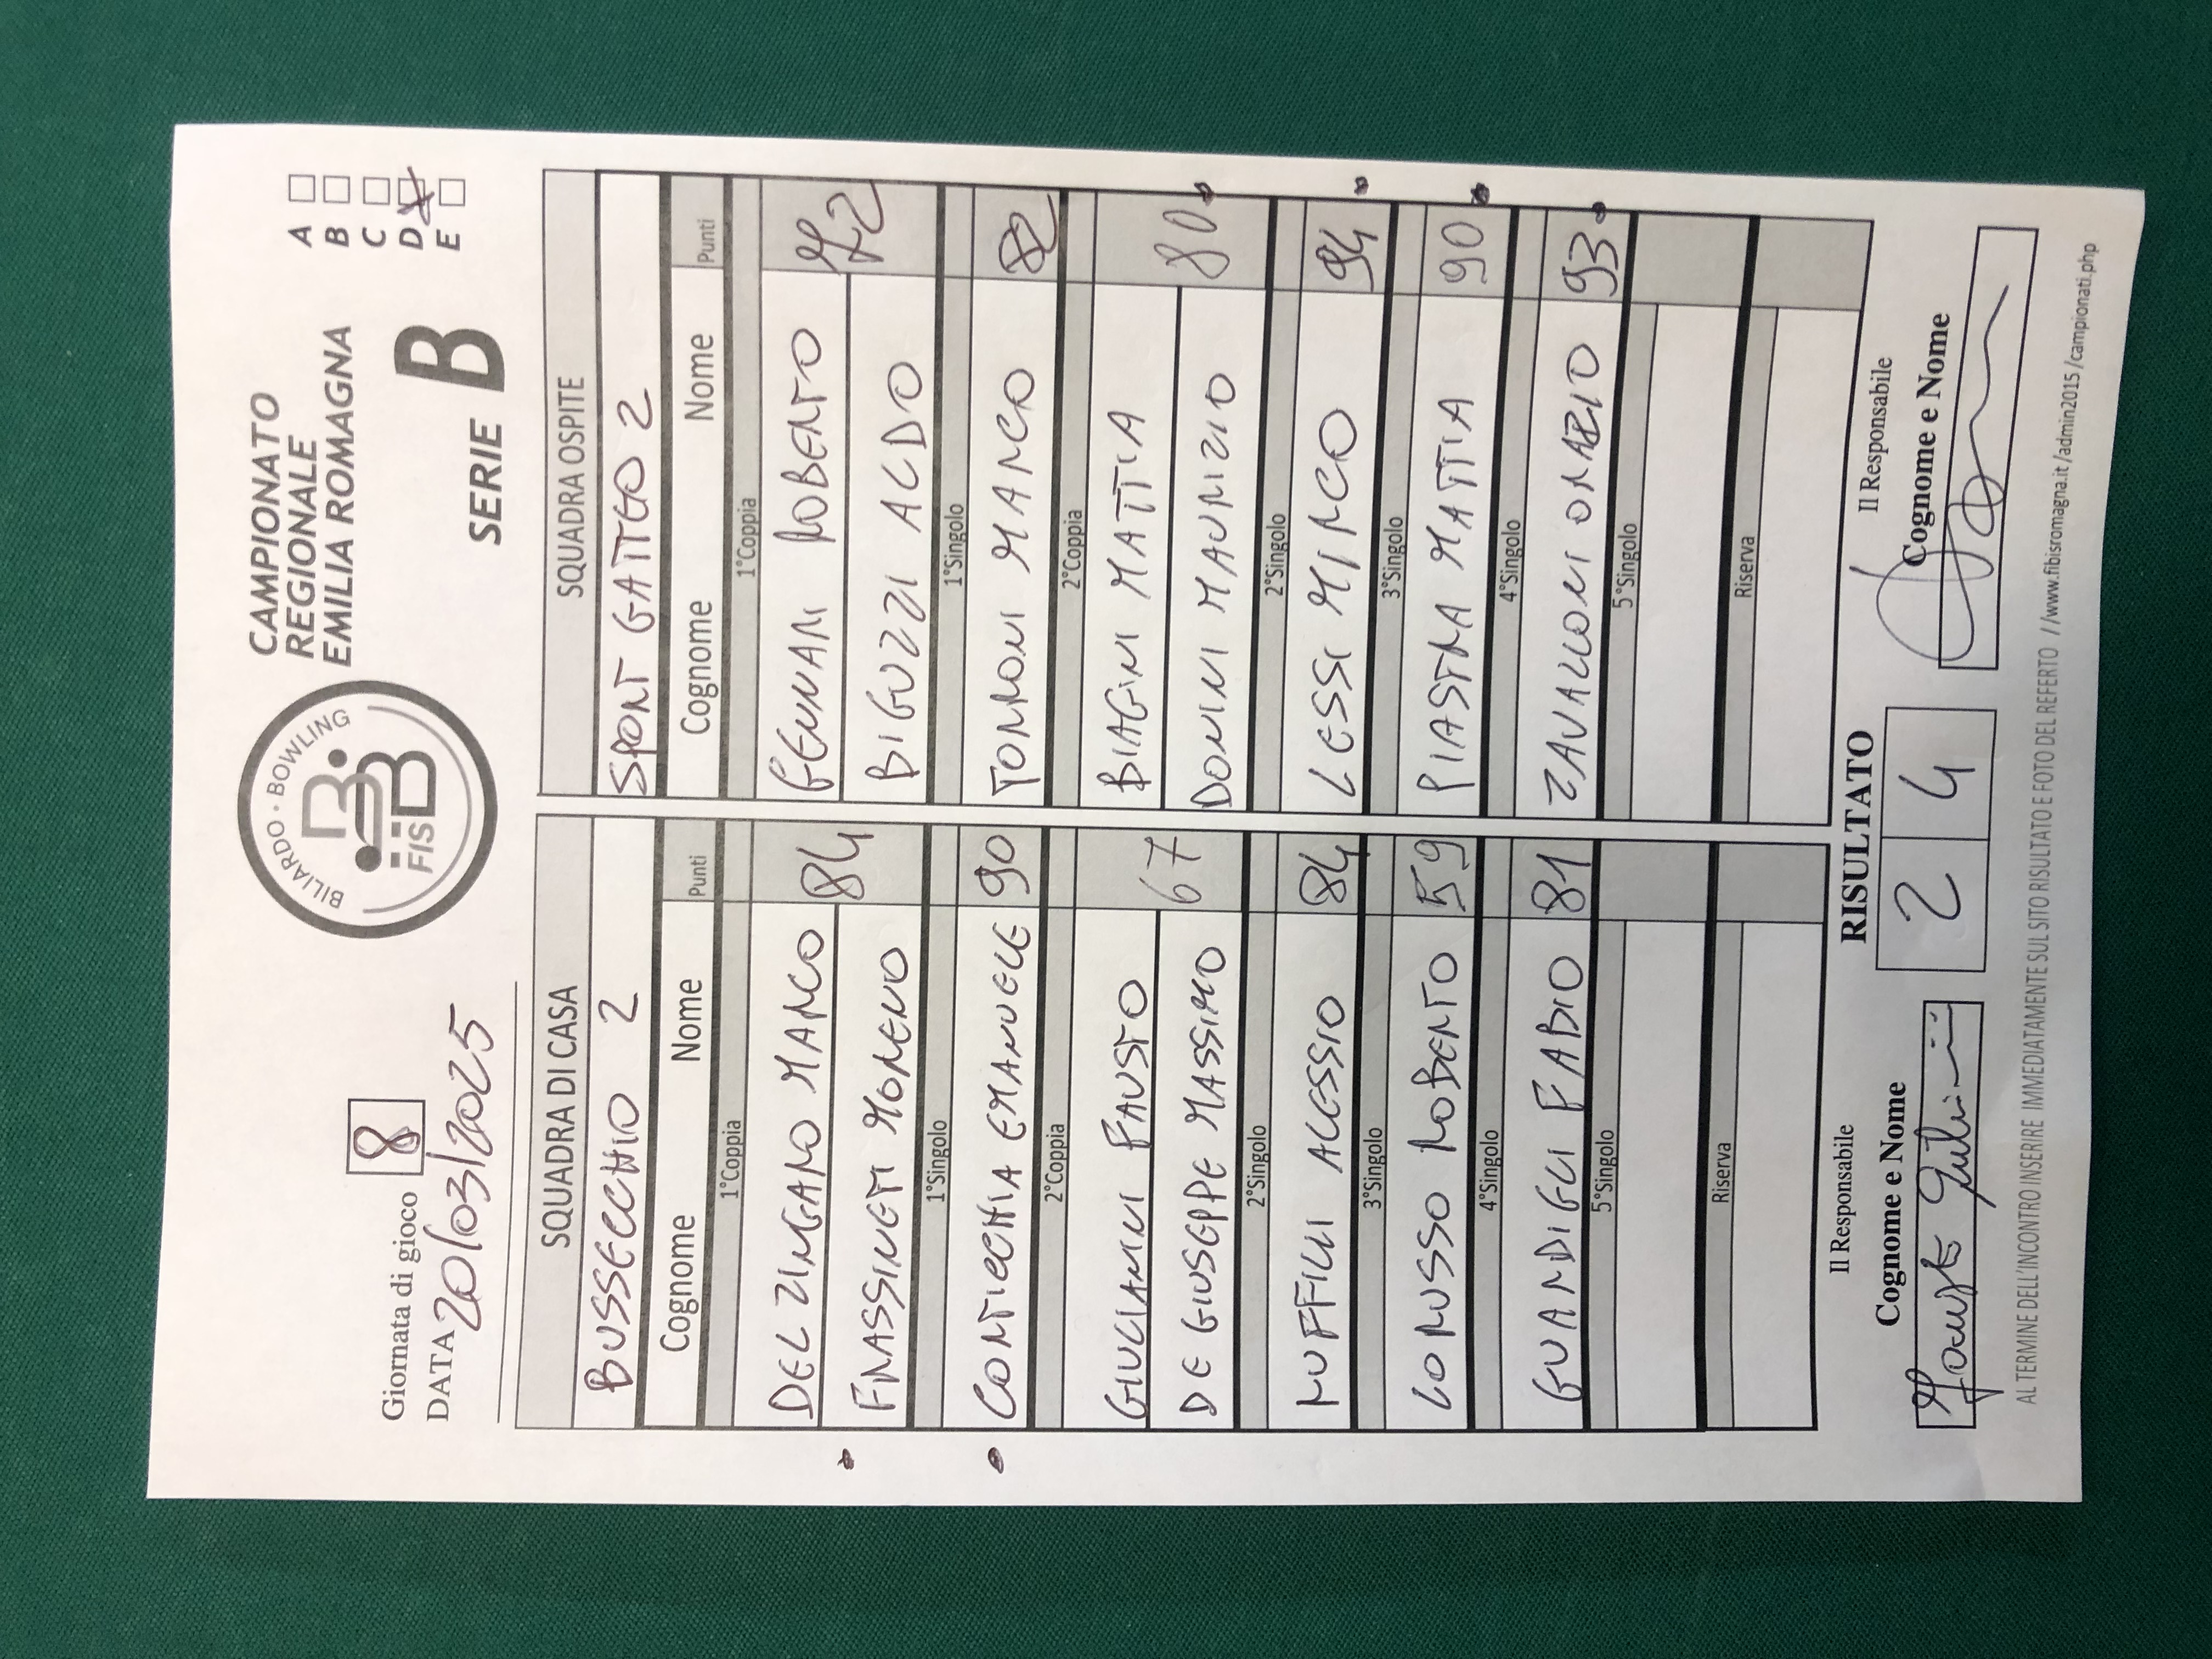 BILIARDO · BOWLING
FISBB
CAMPIONATO
REGIONALE
EMILIA ROMAGNA
A
B
C
D
E
Giornata di gioco 8
DATA 20/03/2025
SERIE B
SQUADRA DI CASA SQUADRA OSPITE
BUSSECCHIO 2 SPORT GATTEO 2
Cognome Nome Punti Cognome Nome Punti
1°Coppia 1°Coppia
DEL ZINGARO MARCO 84 GENNARI ROBERTO 72
FRASSINETI MORENO BIGUZZI ALDO
1°Singolo 1°Singolo
CORTICCHIA EMANUELE 90 TORRONI MARCO 82
2°Coppia 2°Coppia
GIULIANINI FAUSTO 67 BIAGINI MATTIA 80
DE GIUSEPPE MASSIMO DONINI MAURIZIO
2°Singolo 2°Singolo
RUFFILLI ALESSIO 84 LESSI MIRCO 94
3°Singolo 3°Singolo
LORUSSO ROBERTO 59 PIASTRA MATTIA 90
4°Singolo 4°Singolo
GUARDIGLI FABIO 81 ZAVALLONI ORAZIO 93
5°Singolo 5°Singolo
Riserva Riserva
Il Responsabile RISULTATO Il Responsabile
Cognome e Nome 2 4 Cognome e Nome
AL TERMINE DELL'INCONTRO INSERIRE IMMEDIATAMENTE SUL SITO RISULTATO E FOTO DEL REFERTO //www.fibisromagna.it/admin2015/campionati.php